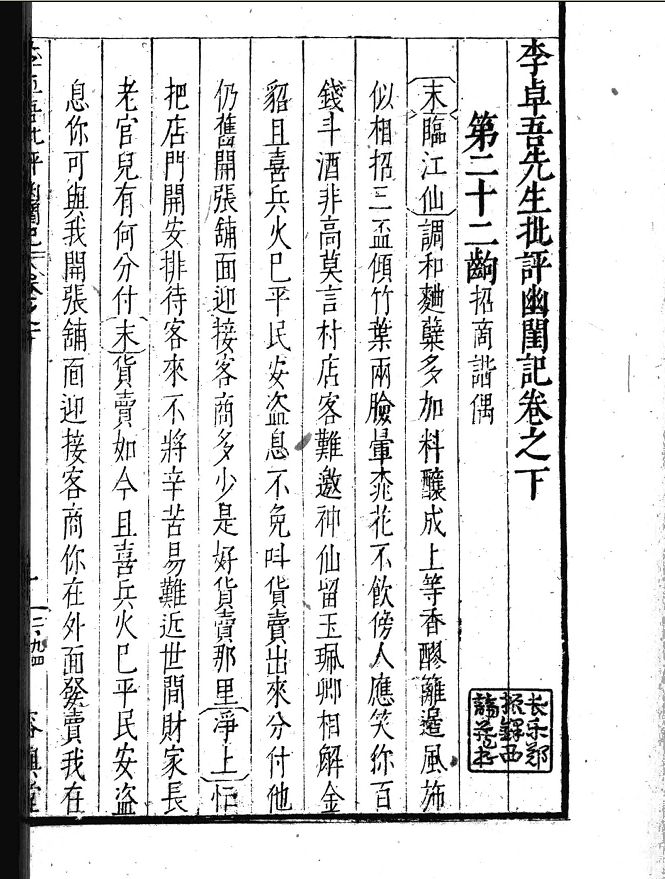 李卓吾先生批評幽閨記卷之下
第二十二齣 招商諧偶
末臨江仙調和麯櫱多加料釀成上等香醪籬邊風斾
似相招三盃傾竹葉兩臉暈桃花不飲傍人應笑你百
錢斗酒非高莫言村店客難邀神仙留玉珮卿相解金
貂且喜兵火已平民安盗息不免叫貨賣出來分付他
仍舊開張舖面迎接客商多少是好貨賣那里淨上忙
把店門開安排待客來不將辛苦易難近世間財家長
老官兒有何分付末貨賣如今且喜兵火已平民安盗
息你可與我開張舖面迎接客商你在外面發賣我在
长乐郑
振鐸西
諦藏书
容與堂